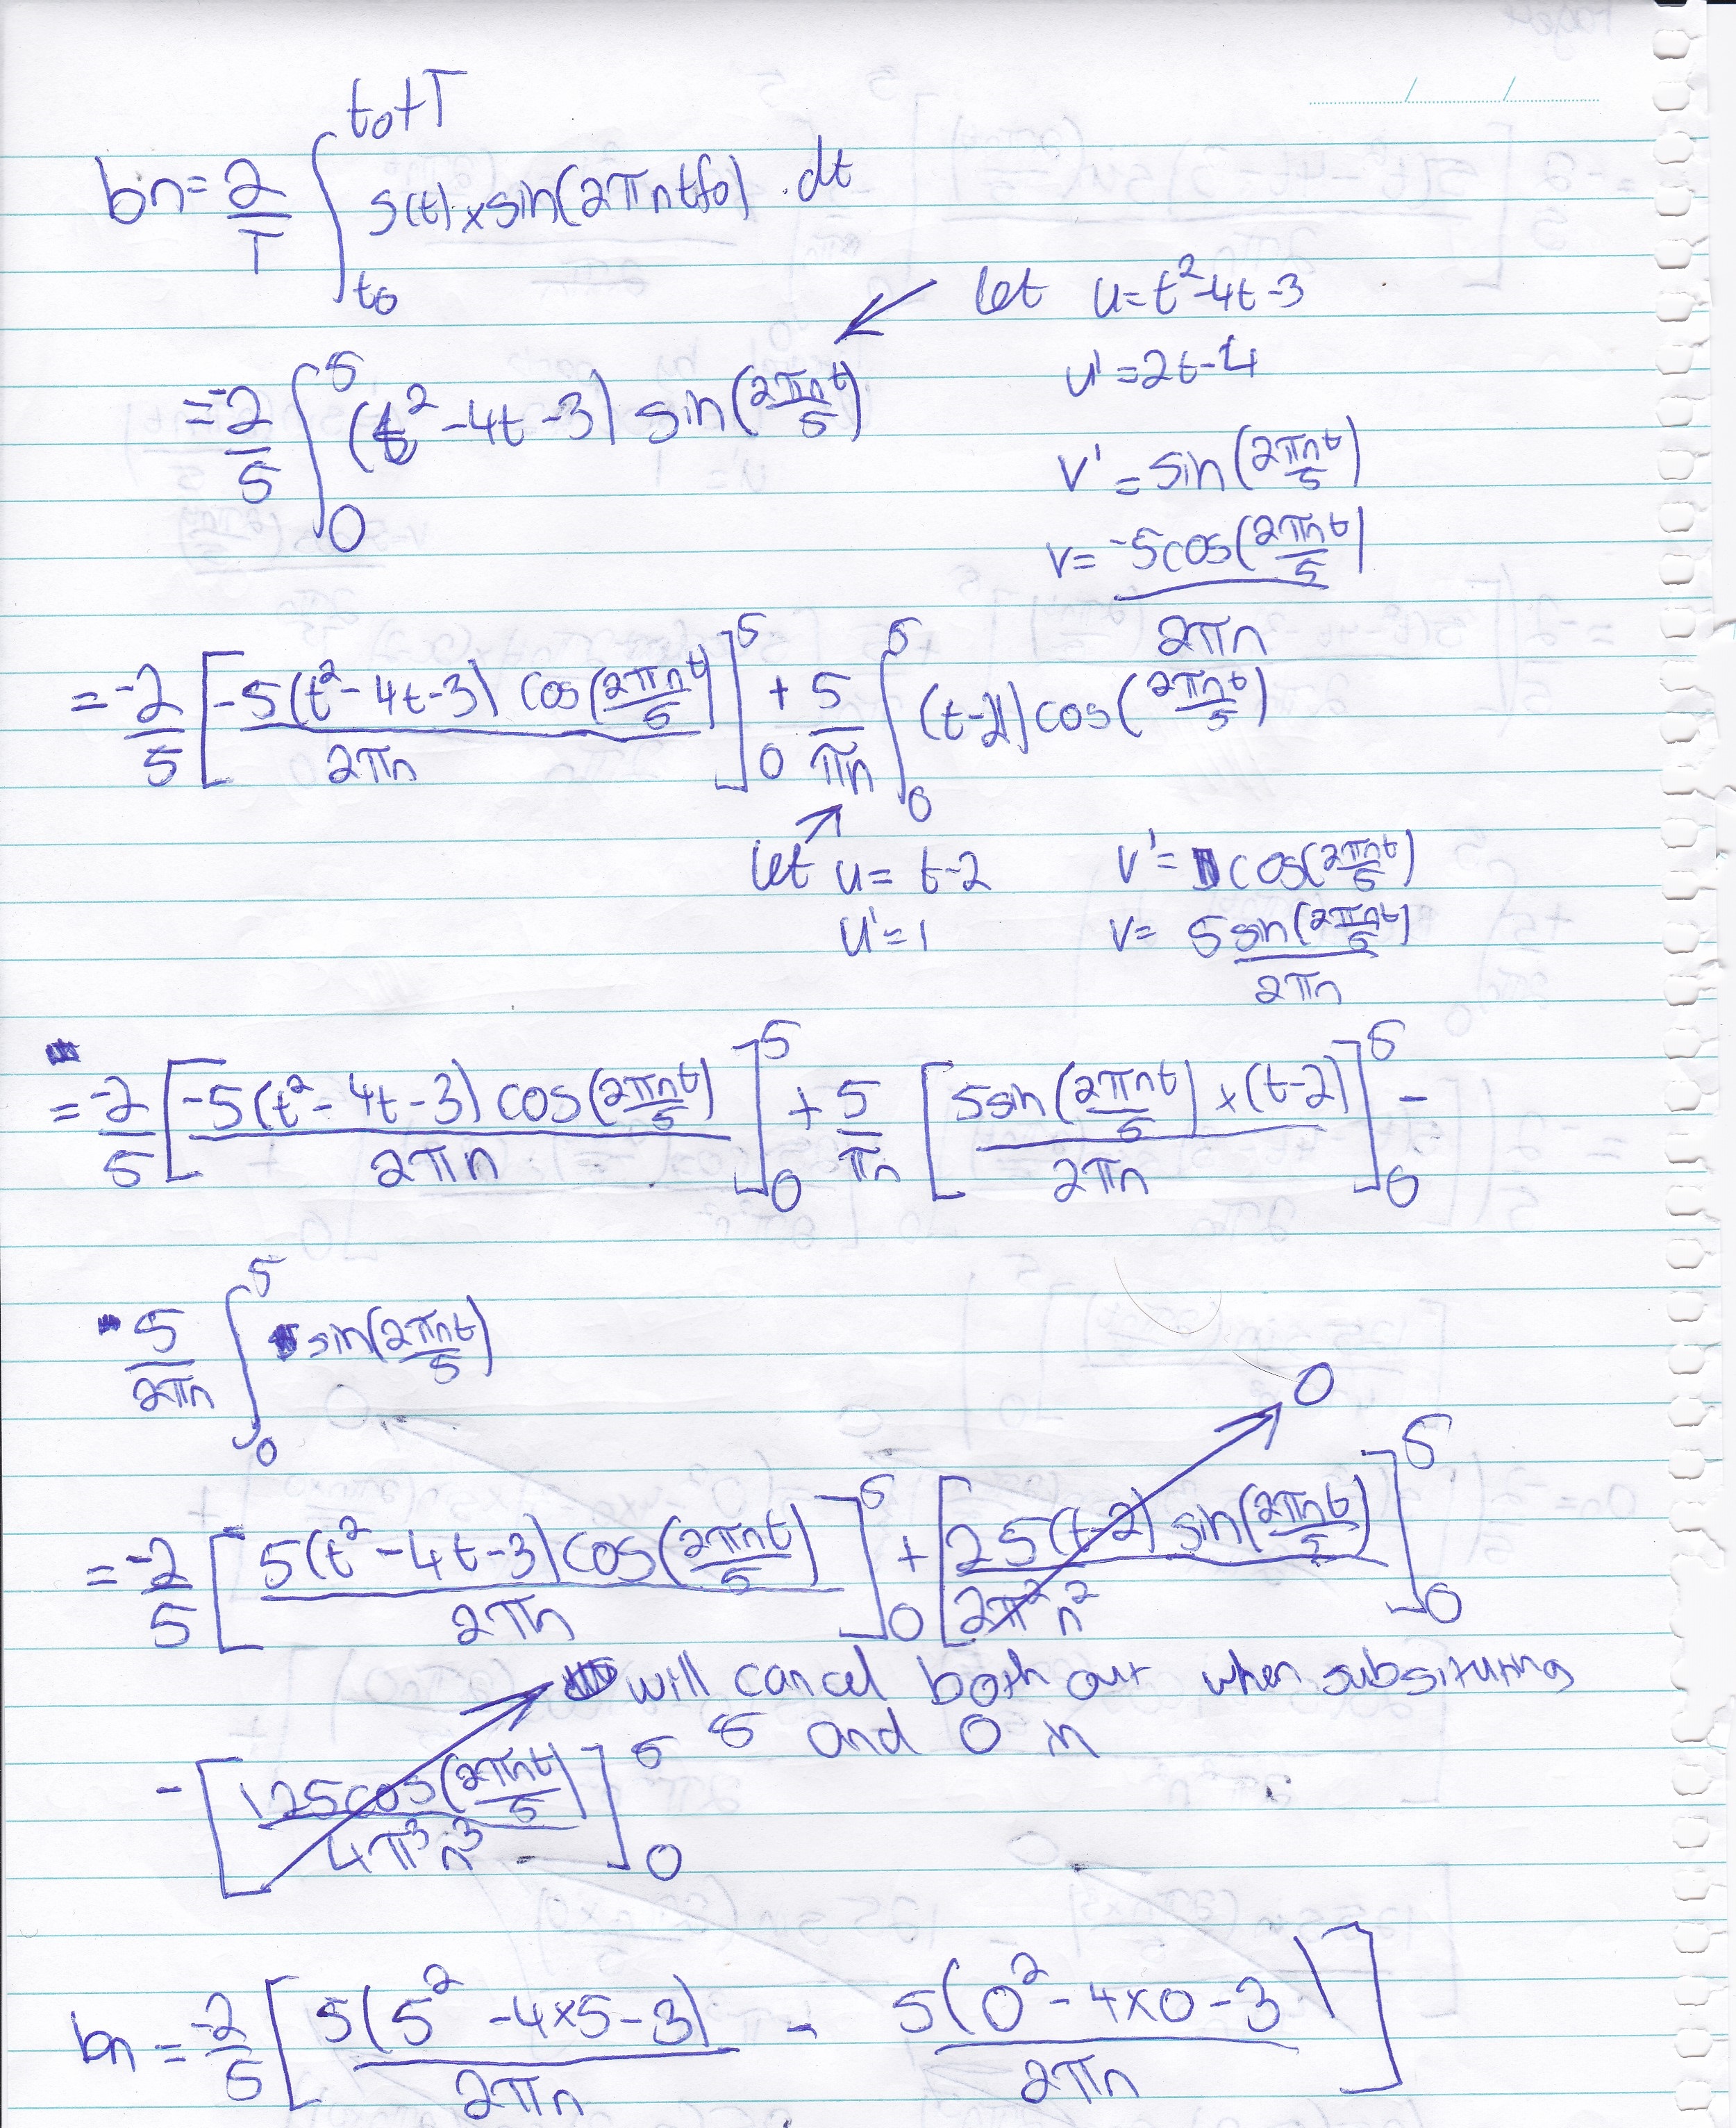 bn = 2/T ∫_{t0}^{t0+T} s(t) × sin(2πntf0) .dt
let u = t² - 4t - 3
u' = 2t - 4
= -2/5 ∫_0^5 (t² - 4t - 3) sin(2πnt/5)
v' = sin(2πnt/5)
v = -5cos(2πnt/5) / 2πn
= -2/5 [-5(t² - 4t - 3) cos(2πnt/5) / 2πn]_0^5 + 5/πn ∫_0^5 (t-2) cos(2πnt/5)
let u = t-2 v' = cos(2πnt/5)
u' = 1 v = 5sin(2πnt/5) / 2πn
= -2/5 [-5(t² - 4t - 3) cos(2πnt/5) / 2πn]_0^5 + 5/πn [5sin(2πnt/5) × (t-2) / 2πn]_0^5 -
5/2πn ∫_0^5 sin(2πnt/5)
0
= -2/5 [-5(t² - 4t - 3) cos(2πnt/5) / 2πn]_0^5 + [25(t-2) sin(2πnt/5) / 2π²n²]_0^5
will cancel both out when subsituting
5 and 0 in
- [125cos(2πnt/5) / 4π³n³]_0^5
bn = -2/5 [5(5² - 4×5 - 3) / 2πn - 5(0² - 4×0 - 3) / 2πn]